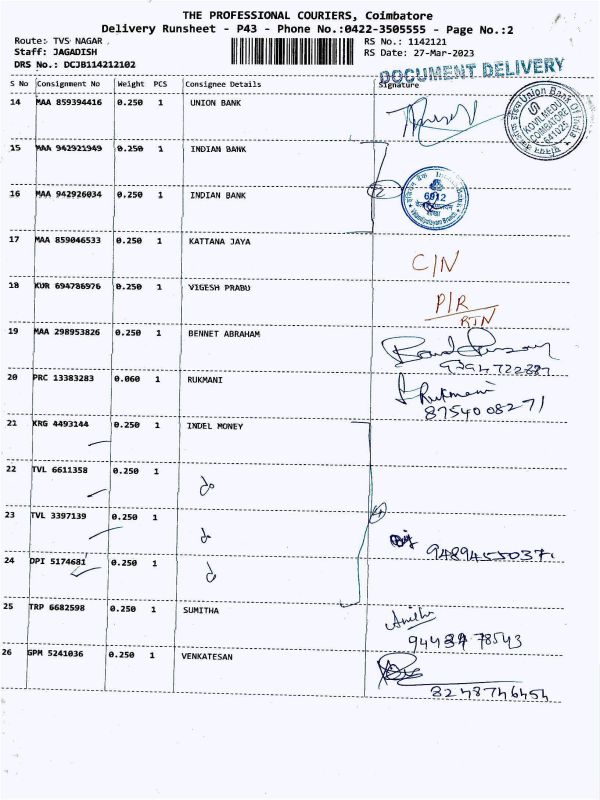 THE PROFESSIONAL COURIERS, Coimbatore
Delivery Runsheet - P43 - Phone No.:0422-3505555 - Page No.:2
Route: TVS NAGAR RS No.: 1142121
Staff: JAGADISH RS Date: 27-Mar-2023
DRS No.: DCJB114212102
DOCUMENT DELIVERY
S No Consignment No Weight PCS Consignee Details Signature
14 MAA 859394416 0.250 1 UNION BANK
Union Bank Of India
KOVILMEDU
COIMBATORE
641025
15 MAA 942921949 0.250 1 INDIAN BANK
16 MAA 942926034 0.250 1 INDIAN BANK
2
6912
17 MAA 859046533 0.250 1 KATTANA JAYA
C/N
18 KUR 694786976 0.250 1 VIGESH PRABU
P/R
RTN
19 MAA 298953826 0.250 1 BENNET ABRAHAM
20 PRC 13383283 0.060 1 RUKMANI
S. Rukmani
8754008271
21 KRG 4493144 0.250 1 INDEL MONEY
22 TVL 6611358 0.250 1 do
23 TVL 3397139 0.250 1 do
4
9489455037
24 DPI 5174681 0.250 1 do
25 TRP 6682598 0.250 1 SUMITHA
26 GPM 5241036 0.250 1 VENKATESAN
8248746454